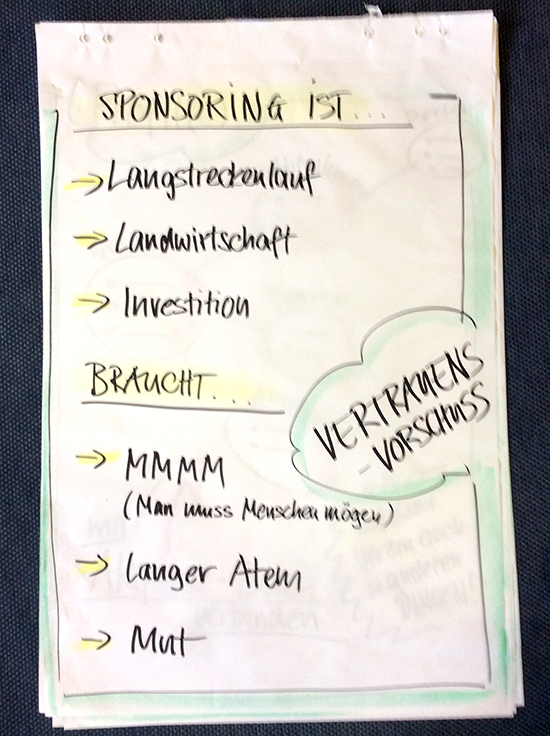 SPONSORING IST...
→ Langstreckenlauf
→ Landwirtschaft
→ Investition
BRAUCHT...
VERTRAUENS
-VORSCHUSS
→ MMMM
(Man muss Menschen mögen)
→ langer Atem
→ Mut